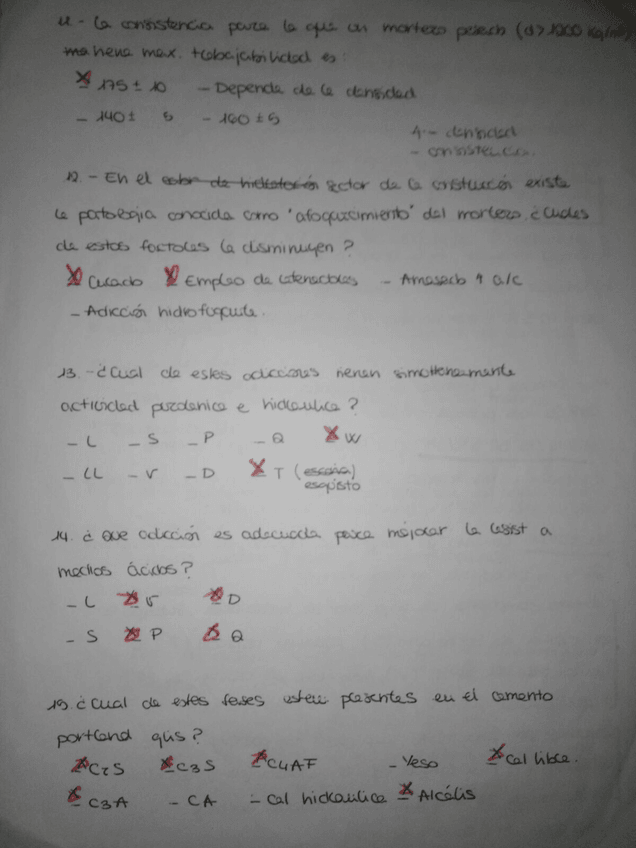 11.- La consistencia para la que un mortero pesado (d>1000 Kg/m³)
ma nena max. trabajabilidad es:
X 175 ± 10 - Depende de la densidad
- 140 ± 5 - 160 ± 5
- densidad
- consistencia.
12.- En el sector de la construcción existe
la patología conocida como "afogaramiento" del mortero. ¿Cuales
de estos factores la disminuyen?
X Curado X Empleo de retenedores - Amasado ↑ a/c
- Adicción hidrofugante.
13.- ¿Cual de estas adicciones tienen simultaneamente
actividad puzolanica e hidraulica?
- L - S - P - Q X W
- LL - V - D X T (escoria)
esquisto
14. ¿Que adicción es adecuada para mejorar la resist a
medios ácidos?
- L X V X D
- S X P X Q
15. ¿Cual de estas fases esten presentes en el cemento
portland gris?
X C2S X C3S X C4AF - Yeso X Cal libre.
X C3A - CA - Cal hidraulica X Alcalis